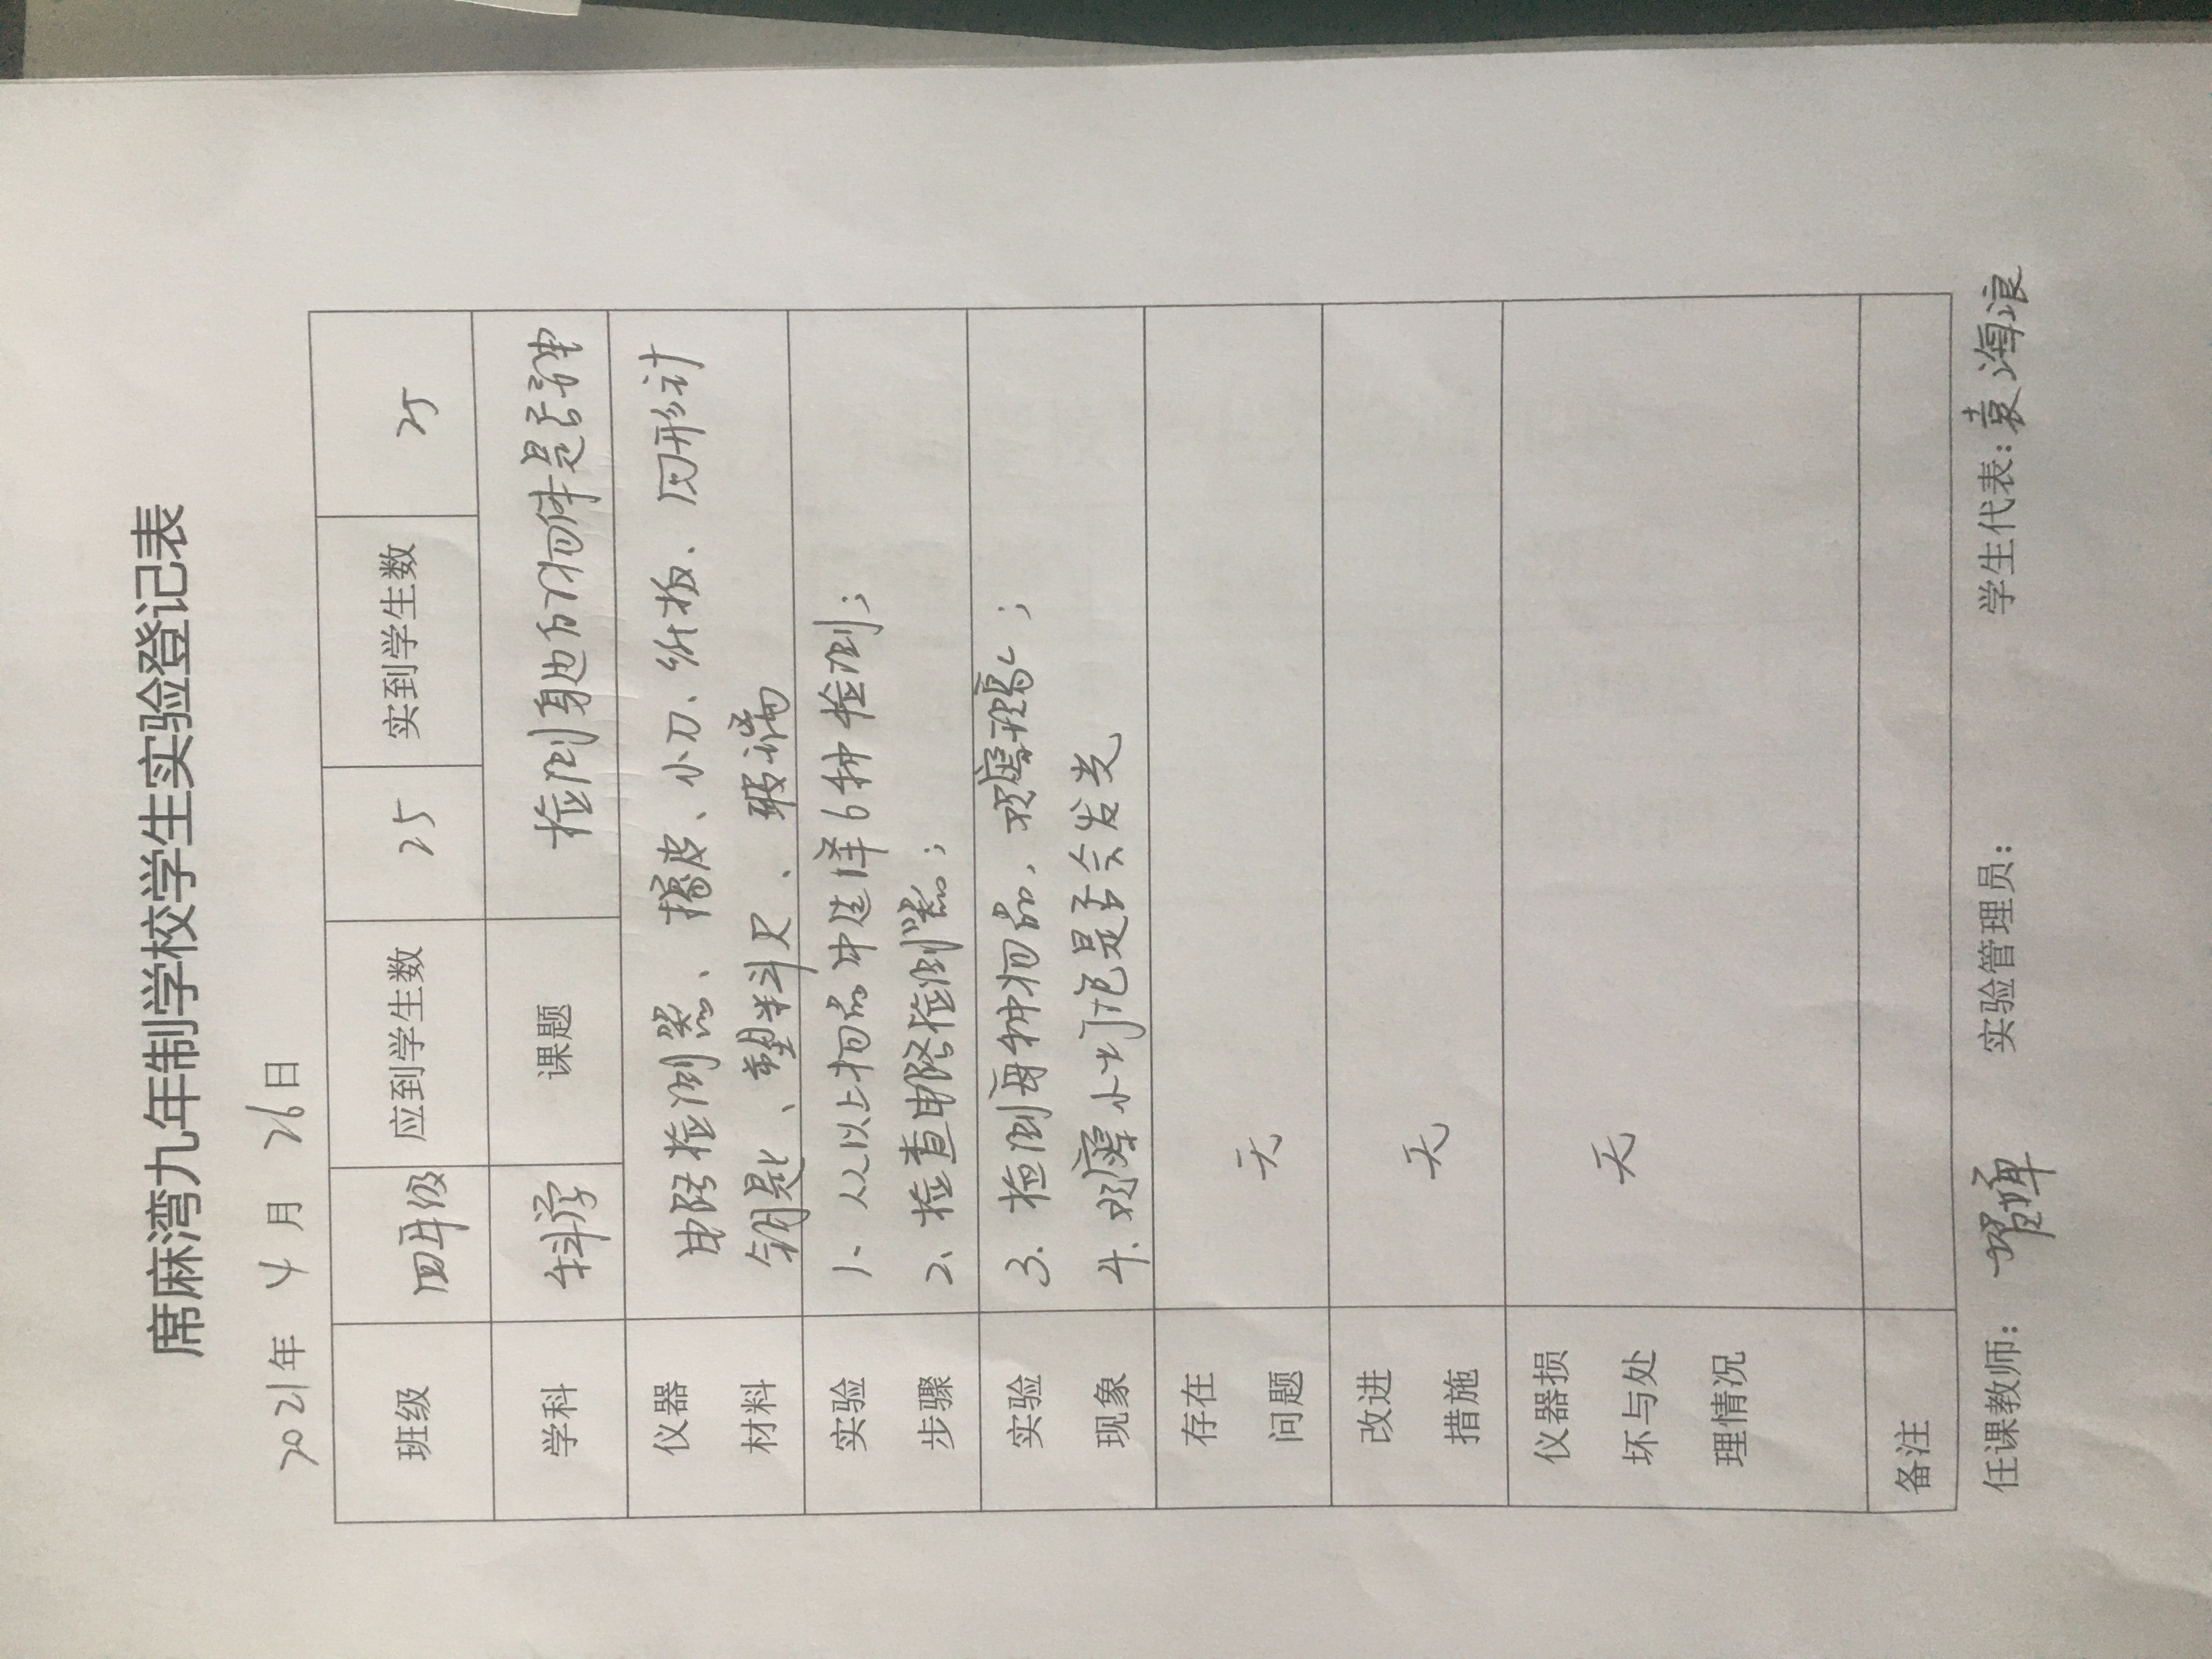 席麻湾九年制学校学生实验登记表
2021年 4 月 26日
班级 四年级 应到学生数 25 实到学生数 25
学科 科学 课题 检测身边的物体是否
仪器
材料
电路检测器、橡皮、小刀、纸板、回形针
钥匙、塑料尺、玻璃
实验
步骤
1、从以上物品中选择6种检测;
2、检查电路检测器;
实验
现象
3. 检测每种物品,观察现象;
4. 观察小灯泡是否会发光
存在
问题
无
改进
措施
无
仪器损
坏与处
理情况
无
备注
任课教师: 实验管理员: 学生代表:袁海浪